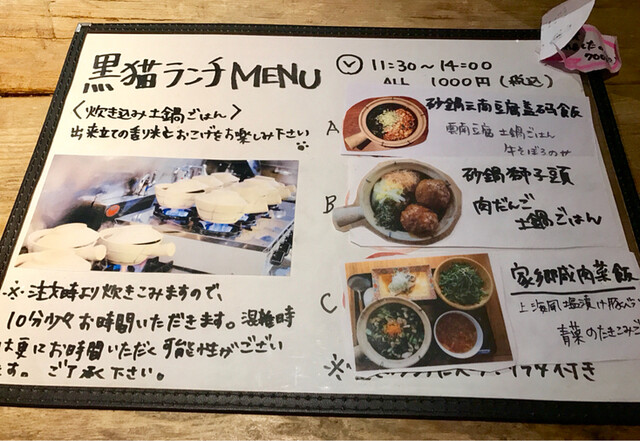 黒猫ランチMENU
11:30～14:00
ALL 1000円(税込)
〈炊き込み土鍋ごはん〉
出来立ての香り米とおこげをお楽しみ下さい
※注文時より炊きこみますので、
10分少々お時間いただきます。混雑時
は更にお時間いただく可能性がござい
ます。ご了承下さい。
A
砂鍋雲南豆腐蓋碼飯
雲南豆腐土鍋ごはん
牛そぼろのせ
B
砂鍋獅子頭
肉だんご
土鍋ごはん
C
家郷咸肉菜飯
上海風塩漬け豚バラ
青菜のたきこみご
※
付き